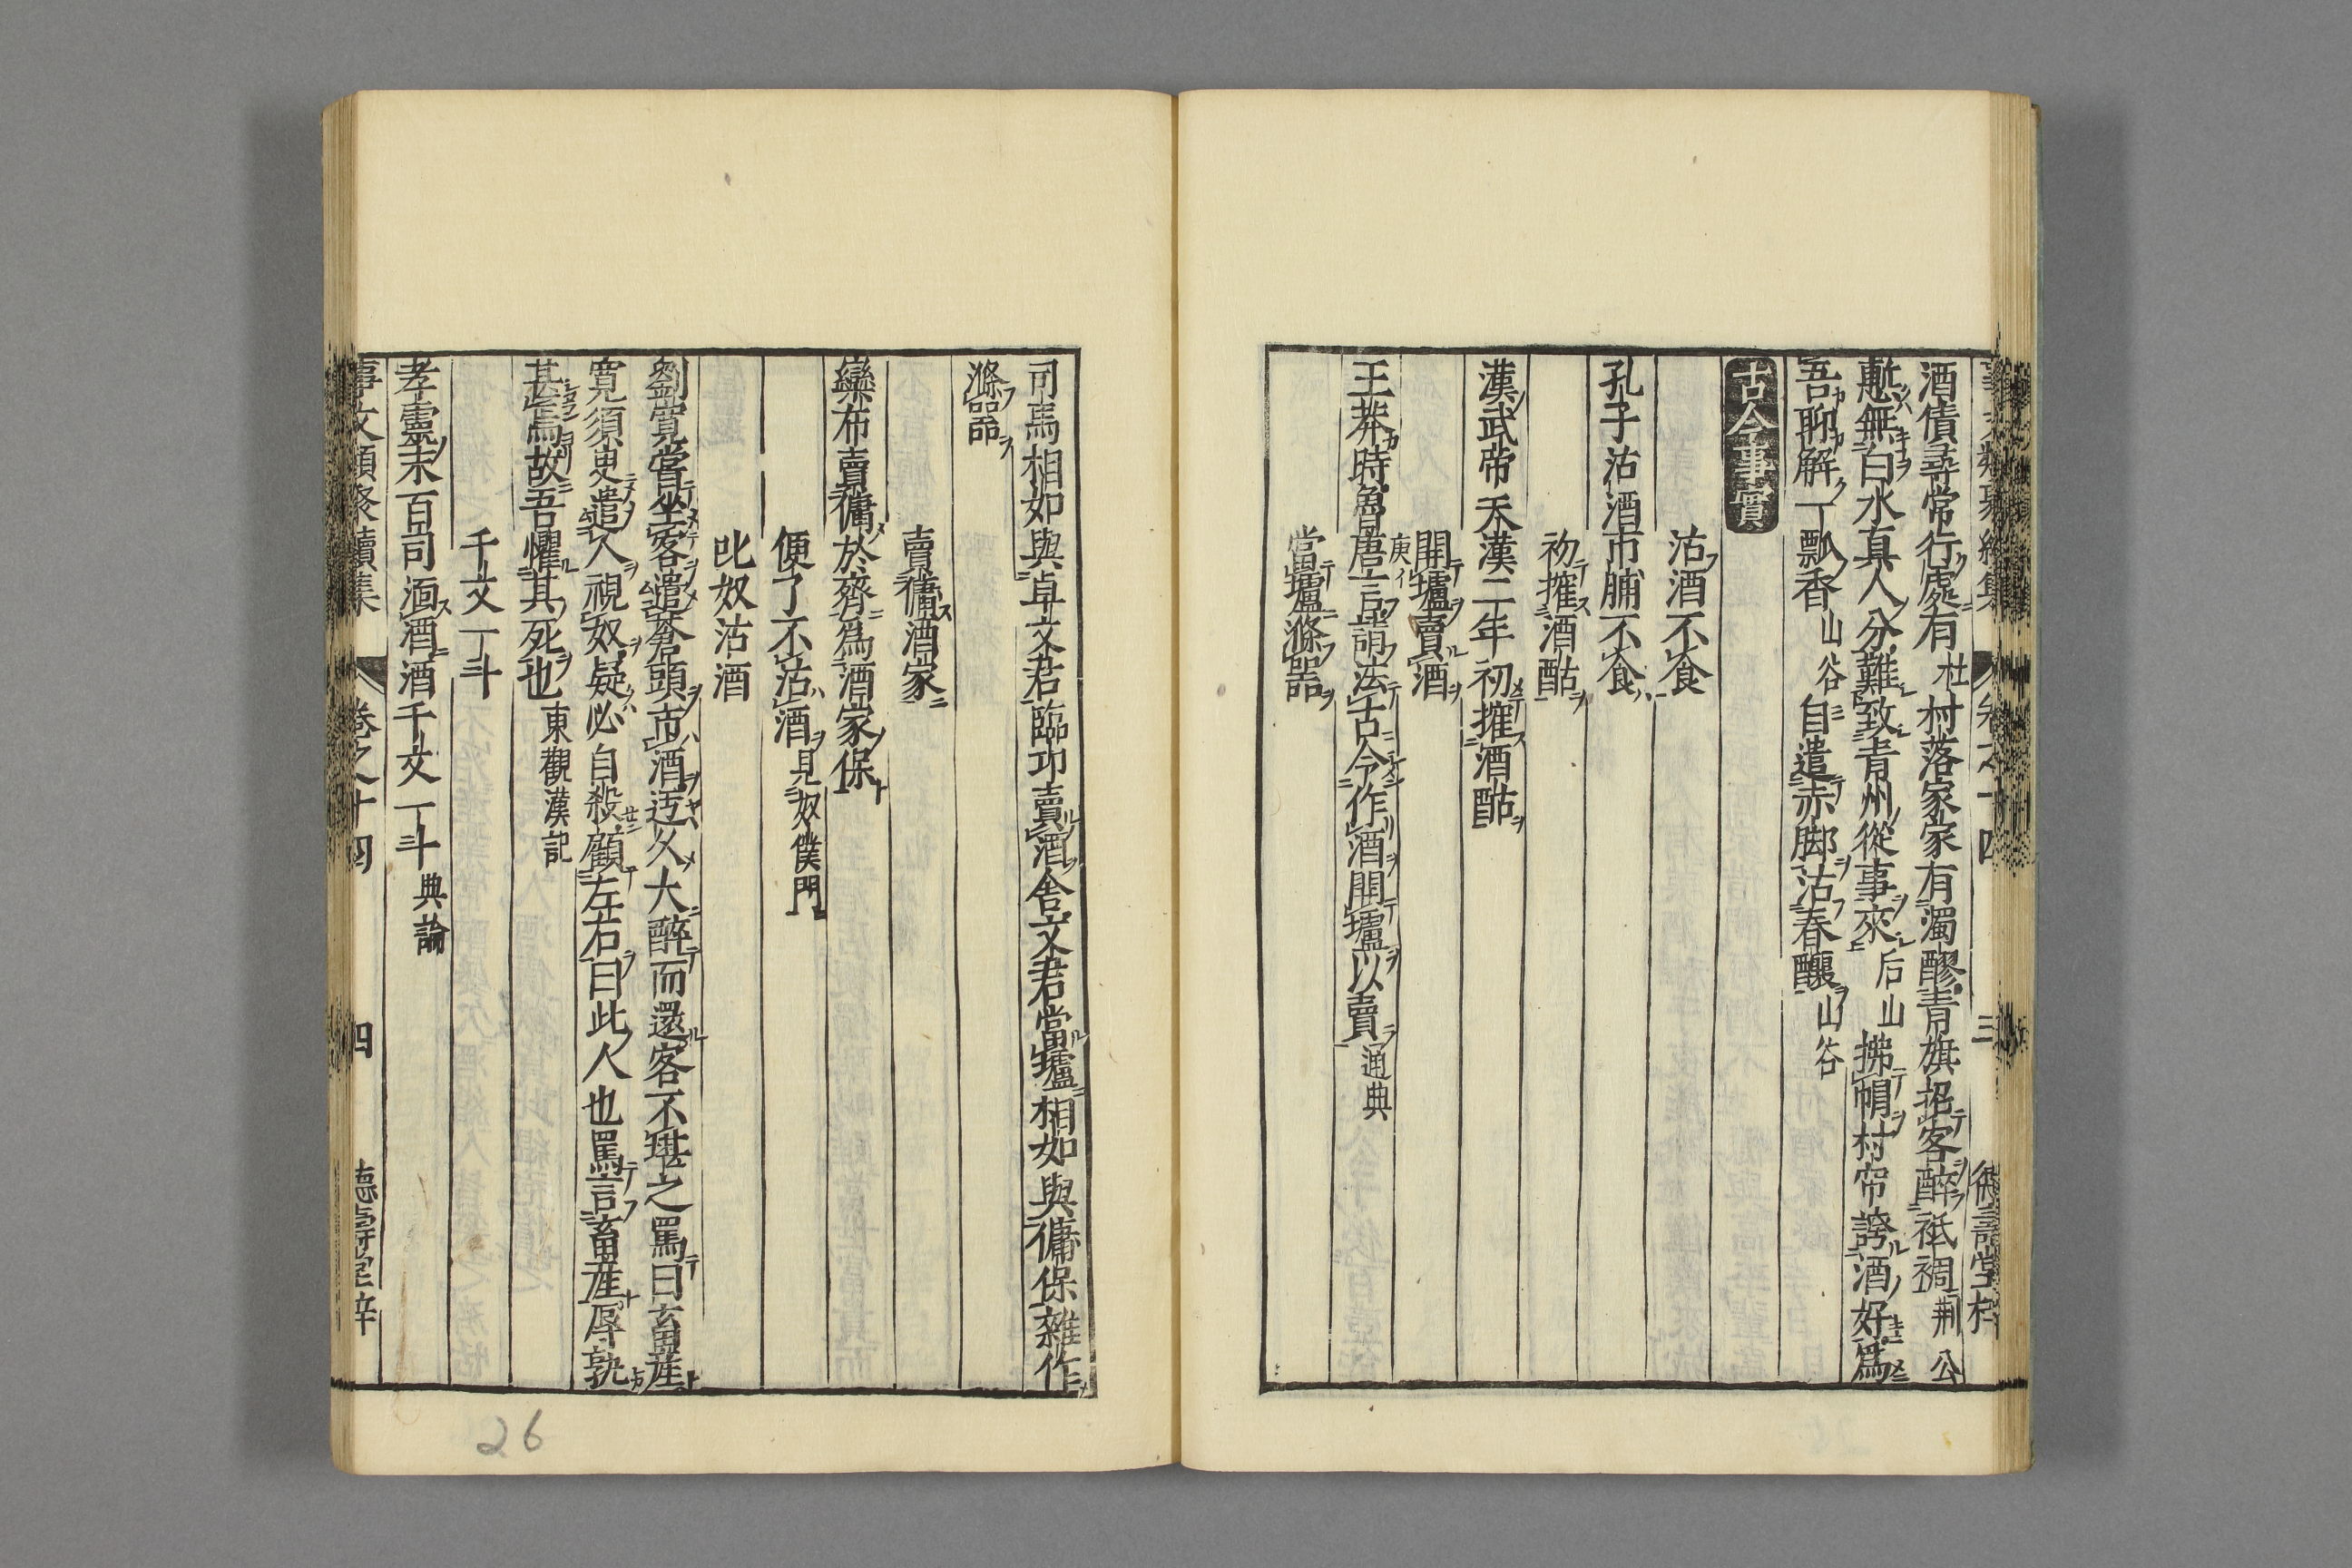 酒債尋常行處有杜村落家家有濁醪青旗招客醉祗裯荆公
慙無白水真人分難致青州從事來后山拂帽村帘誇酒好為
吾聊解一瓢香山谷自遣赤脚沽春釀山谷
古今事實
沽酒不食
孔子沽酒市脯不食
初搉酒酤
漢武帝天漢二年初搉酒酤
開壚賣酒
王莽時魯唐言請法古令作酒開壚以賣通典
當壚滌器
司馬相如與卓文君臨卭賣酒舎文君當壚相如與傭保雜作
滌器
賣傭酒家
欒布賣傭於齊為酒家保
便了不沽酒見奴僕門
叱奴沽酒
劉寛嘗坐客遣蒼頭市酒迃久大醉而還客不堪之罵曰畜産
寛須臾遣人視奴疑必自殺顧左右曰此人也罵言畜産辱孰
甚焉故吾懼其死也東觀漢記
千文一斗
孝靈末百司湎酒酒千文一斗典論
事文類聚續集 卷之十四 四 德壽堂梓